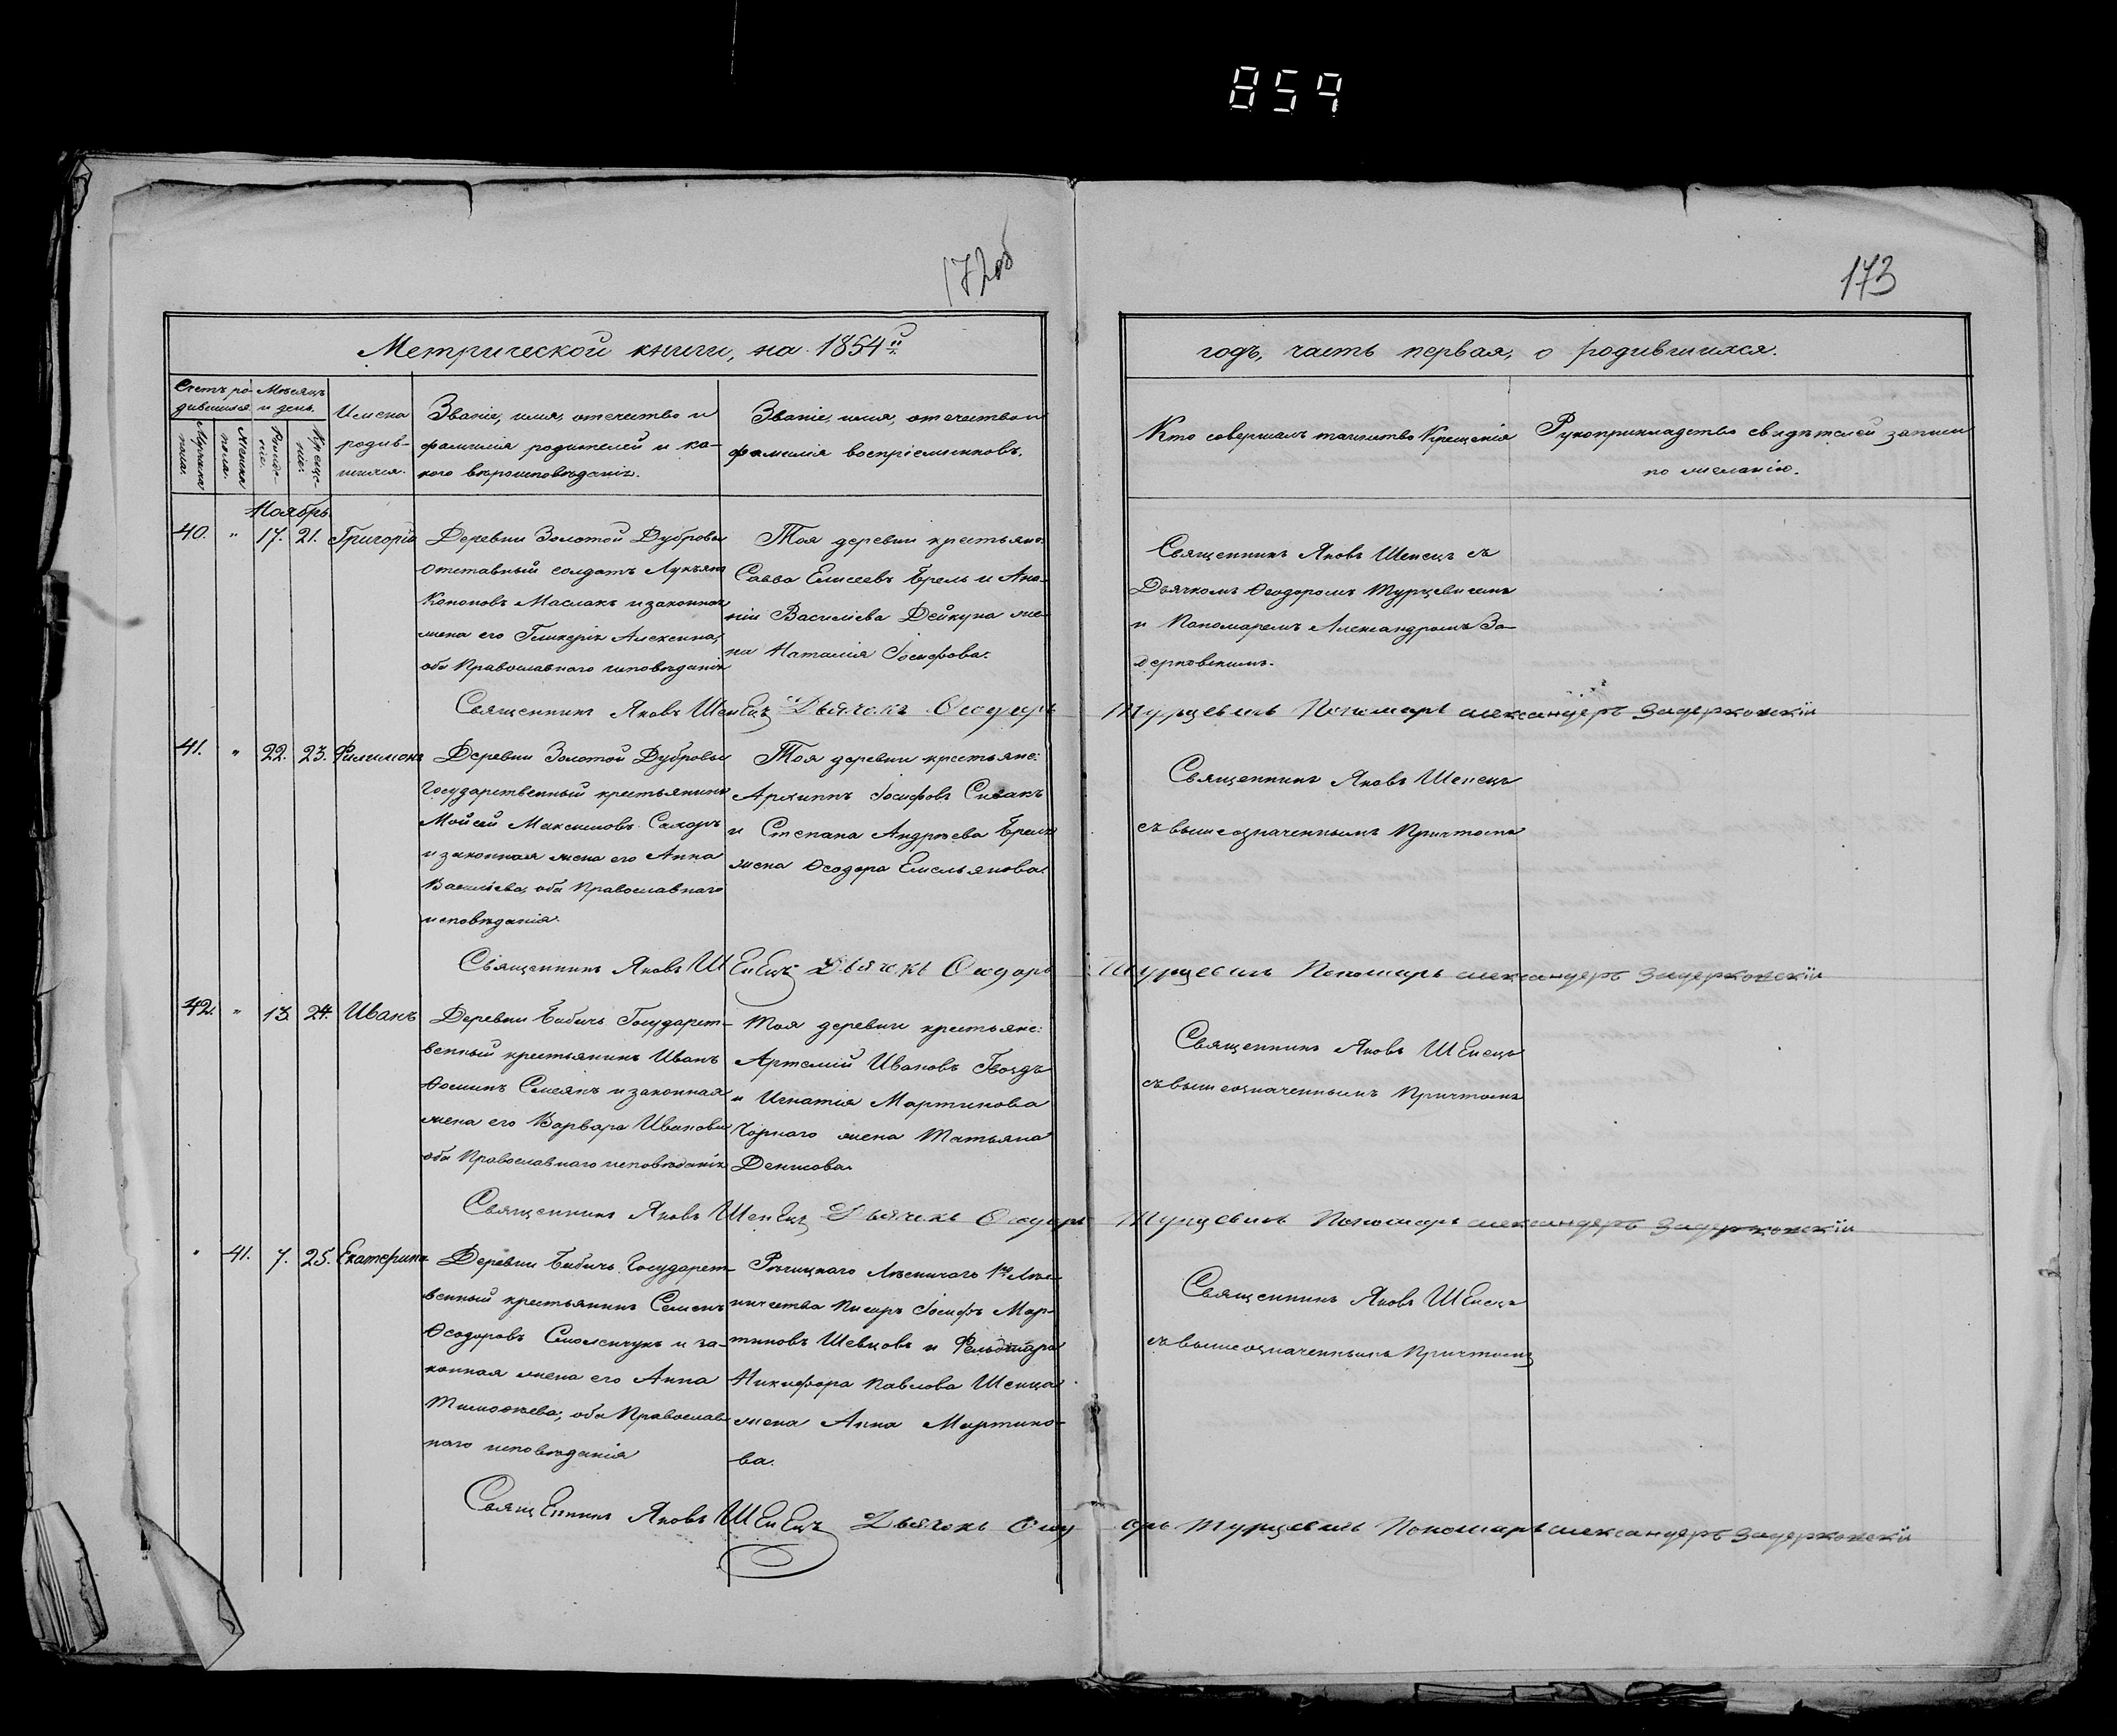 859
172об
173
Метрической книги, на 1854й
годъ, часть первая, о родившихся.
Счетъ ро-
дившихся
Мѣсяцъ
и день.
Мужеска
пола.
Женска
пола.
Рожде-
ніе.
Креще-
ніе.
Имена
родив-
шихся.
Званіе, имя, отечество и
фамилія родителей и ка-
кого вѣроисповѣданія.
Званіе, имя, отечество и
фамилія воспріемниковъ.
Кто совершалъ таинство Крещенія
Рукоприкладство свидѣтелей записи
по желанію.
Ноябрь.
40. " 17. 21. Григорій
Деревни Золотой Дубровы
отставный солдатъ Лукьянъ
Кононовъ Маслакъ и законная
жена его Гликерія Алексеева,
оба Православнаго исповѣданія
Тоя деревни крестьяне:
Савва Елисеевъ Брель и Ана-
нія Василіева Дейкуна же-
на Наталія Іосифова.
Священникъ Яковъ Шепецъ съ
Дьячкомъ Ѳеодоромъ Турцевичемъ
и Пономаремъ Александромъ За-
дерковскимъ.
Священникъ Яковъ Шепецъ Дьячекъ Ѳеодоръ Турцевичъ Пономарь Александеръ Задерковскій
41. " 22. 23. Филимонъ
Деревни Золотой Дубровы
Государственный крестьянинъ
Мойсей Максимовъ Сахоръ
и законная жена его Анна
Васильева, оба Православнаго
исповѣданія.
Тоя деревни крестьяне:
Архиппъ Іосифовъ Сивакъ
и Степана Андреева Бреля
жена Ѳеодора Емельянова.
Священникъ Яковъ Шепецъ
съ вышеозначеннымъ Причтомъ
Священникъ Яковъ Шепецъ Дьячекъ Ѳеодоръ Турцевичъ Пономарь Александеръ Задерковскій
42. " 13. 24. Иванъ
Деревни Бабичъ Государст-
венный крестьянинъ Иванъ
Ѳоминъ Смеянъ и законная
жена его Варвара Иванова
оба Православнаго исповѣданія
Тоя деревни крестьяне:
Артемій Ивановъ Гвоздь
и Игнатія Мартинова
Чорнаго жена Татьяна
Денисова.
Священникъ Яковъ Шепецъ
съ вышеозначеннымъ Причтомъ
Священникъ Яковъ Шепецъ Дьячекъ Ѳеодоръ Турцевичъ Пономарь Александеръ Задерковскій
" 41. 7. 25. Екатерина
Деревни Бабичъ Государст-
венный крестьянинъ Семенъ
Ѳеодоровъ Смоленчукъ и за-
конная жена его Анна
Тимоѳеева, оба Православ-
наго исповѣданія
Рѣчицкаго Лѣсничаго 1го Лѣс-
ничества Писарь Іосифъ Мар-
тиновъ Шевцовъ и Фельдшера
Никифора Павлова Шепца
жена Анна Мартино-
ва.
Священникъ Яковъ Шепецъ
съ вышеозначеннымъ Причтомъ
Священникъ Яковъ Шепецъ Дьячекъ Ѳеодоръ Турцевичъ Пономарь Александеръ Задерковскій